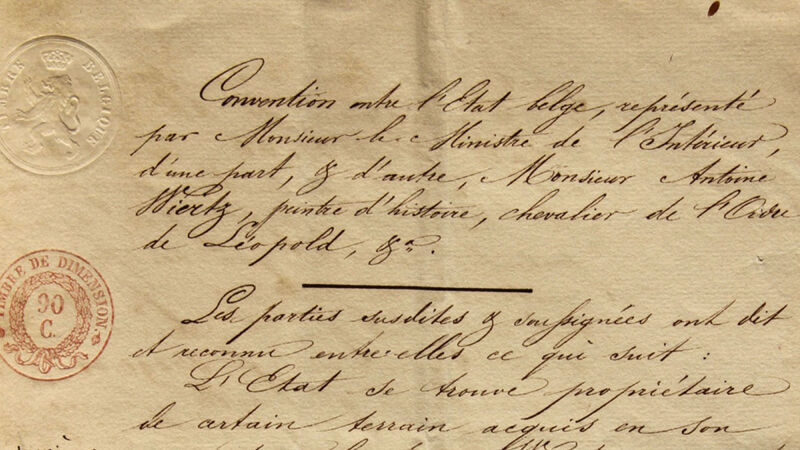 TIMBRE BELGIQUE
Convention entre l'Etat belge, représenté
par Monsieur le Ministre de l'Intérieur,
d'une part, & d'autre, Monsieur Antoine
Wiertz, peintre d'histoire, chevalier de l'Ordre
de Léopold, &a.
TIMBRE DE DIMENSION.
90
C.
Les parties susdites & soussignées ont dit
et reconnu entre elles ce qui suit :
L'Etat se trouve propriétaire
de certain terrain acquis en son